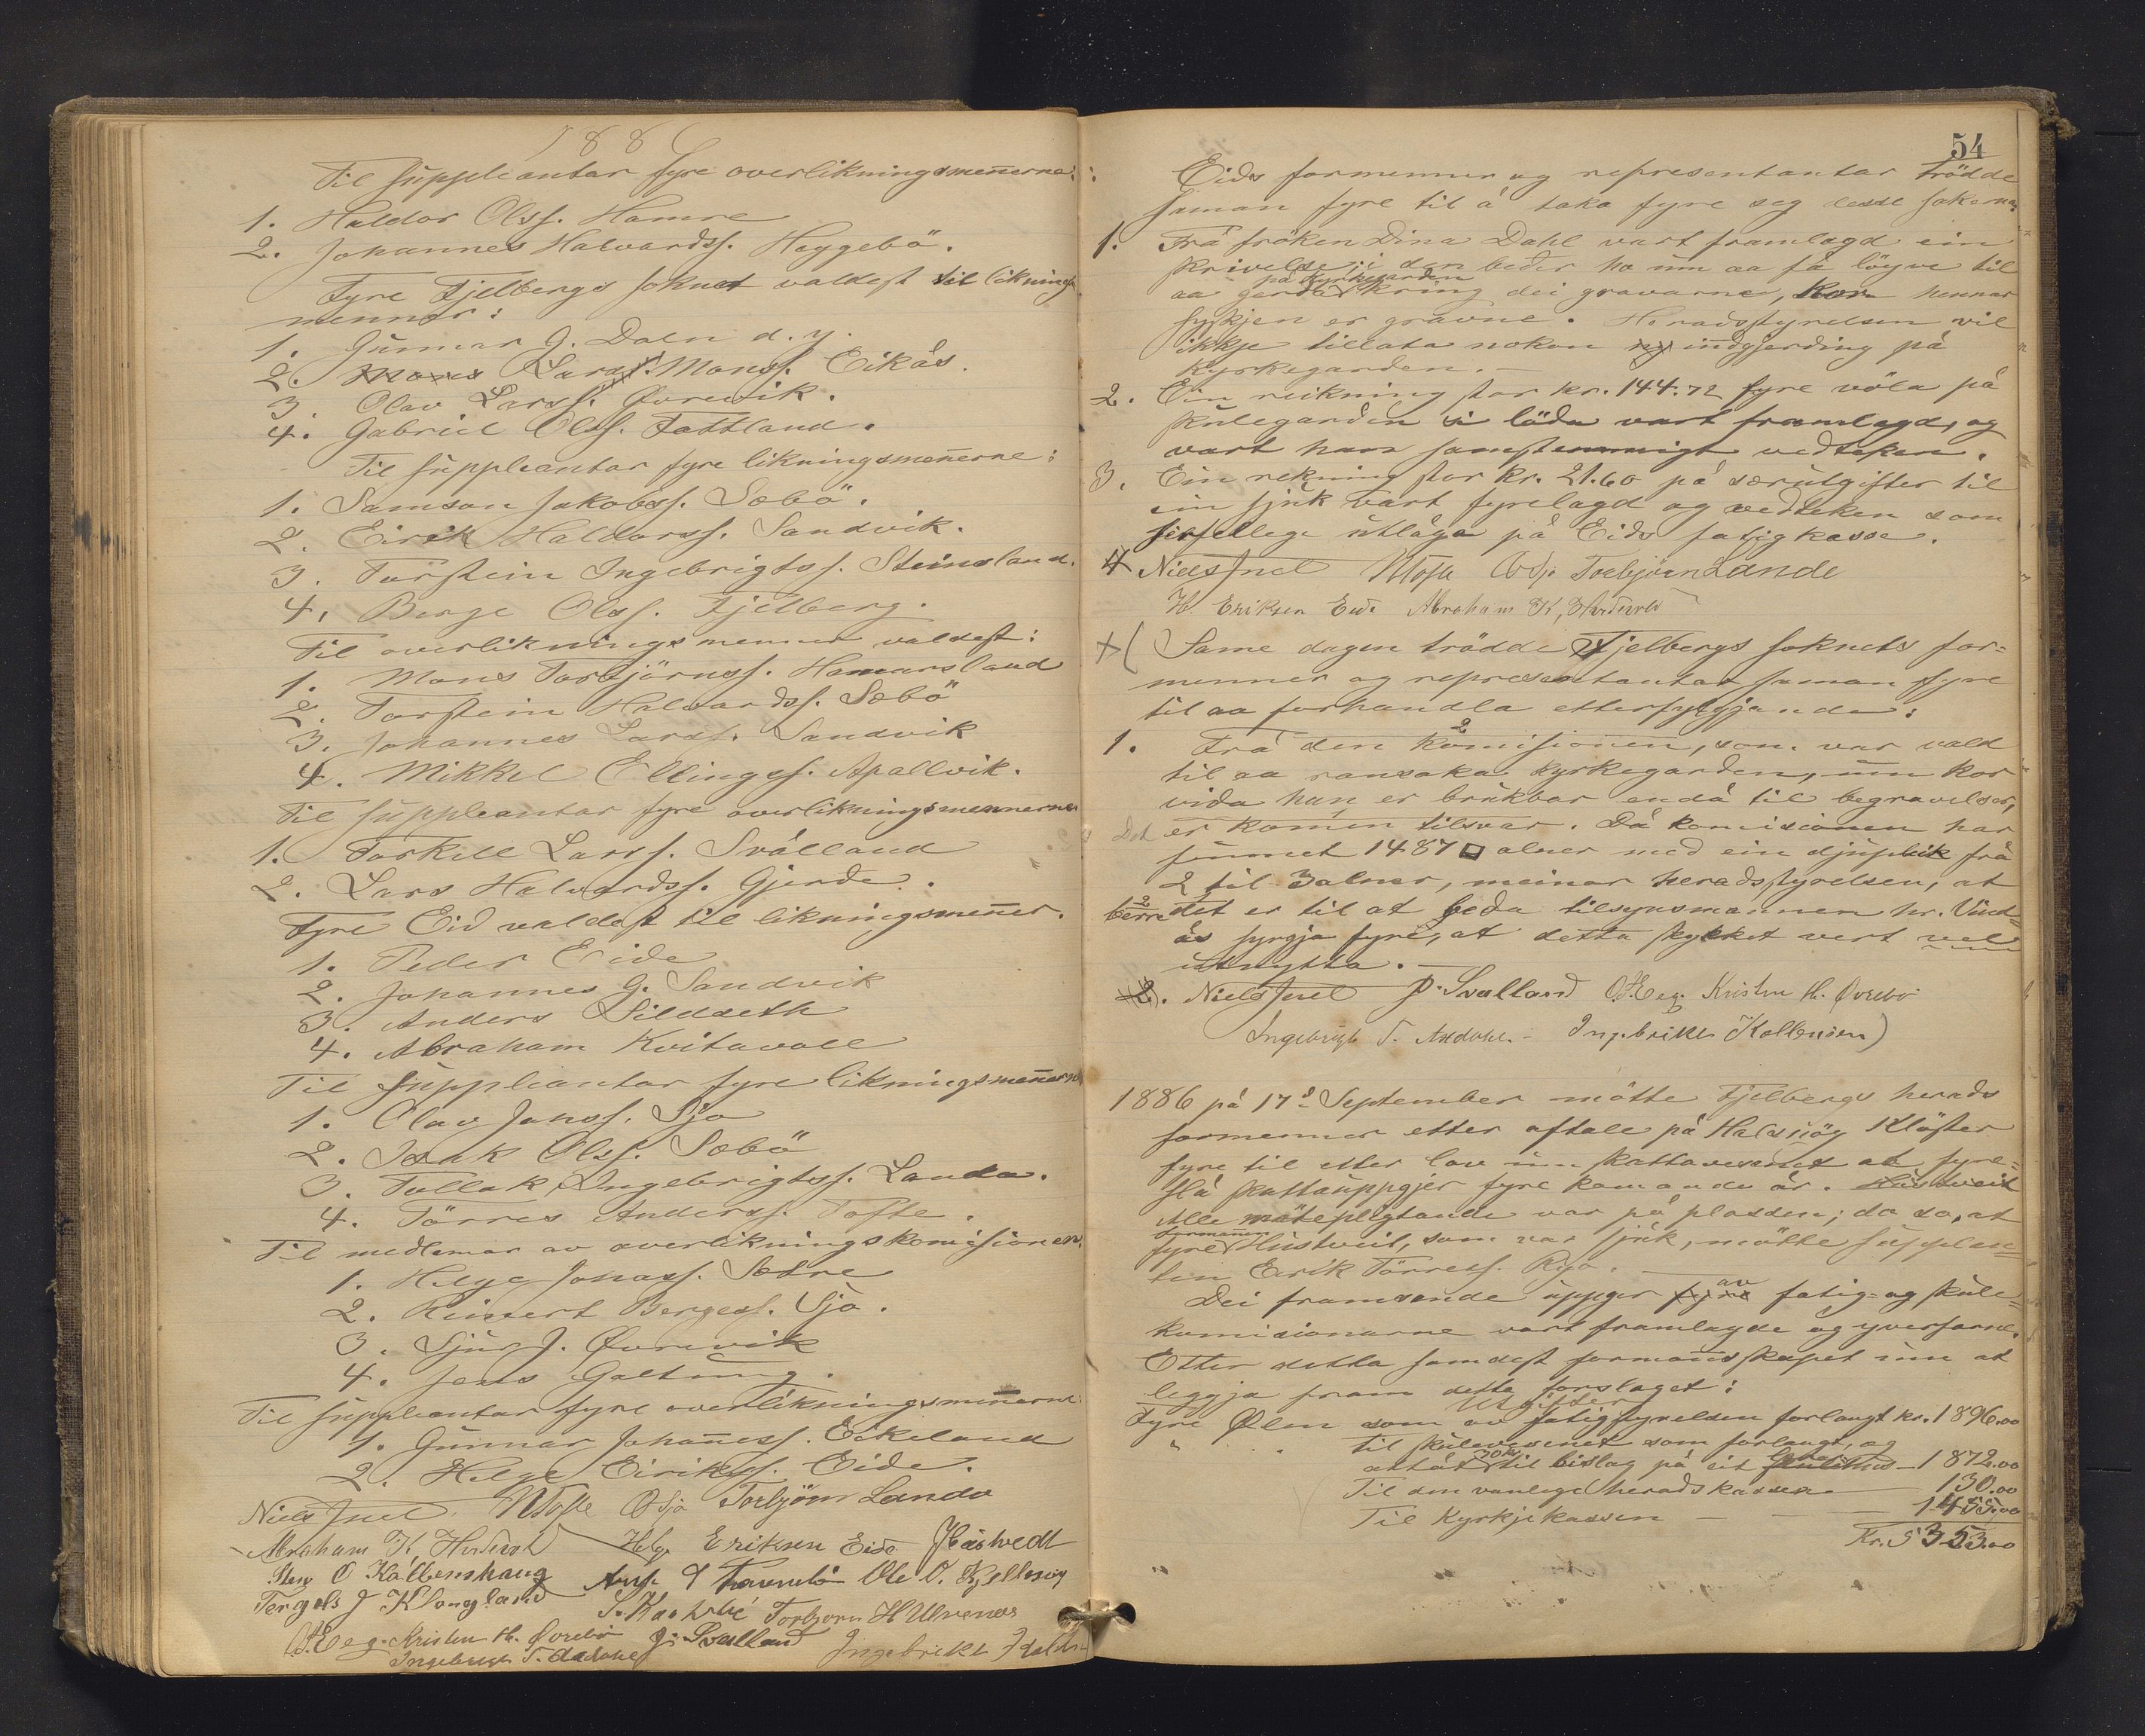 1886
Til suppleantar fyre overlikningsmennerne:
1. Haldor Olss. Hamre
2. Johannes Halvardss. Høggebö.
Fyre Fjelbergs soknet valdest til liknings
menner:
1. Gunnar G. Daln d. y.
2. Mons Larss. Monss. Eikås.
3. Olav Larss. Øvrevik.
4. Gabriel Olss. Tattland.
Til suppleantar fyre likningsmennerne:
1. Samson Jakobss. Sæbö.
2. Eirik Haldorss. Sandvik.
3. Torstein Ingebrigtss. Steinsland.
4. Berge Olss. Fjelberg.
Til overlikningsmenner valdest:
1. Mons Torbjörnss. Hamarsland
2. Torstein Halvardss. Sæbö
3. Johannes Larss. Sandvik
4. Mikkel Ellingss. Apallvik.
Til suppleantar fyre overlikningsmennerne
1. Torkell Larss. Svålland
2. Lars Halvardss. Gjerde.
Fyre Eid valdest til likningsmenner.
1. Peder Eide
2. Johannes G. Sandvik
3. Anders Sildseth
4. Abraham Kvitavoll
Til suppleantar fyre likningsmennerne
1. Olav Janss. Sjo
2. Isak Olss. Sæbö
3. Tollak Ingebrigtss. Landa.
4. Törres Anderss. Tofte.
Til medlemar av overlikningskomisionen.
1. Helge Jonass. Sætre
2. Reinert Bergess. Sjo.
3. Sjur J. Øvrevik
4. Jens Galtung.
Til suppleantar fyre overlikningsmennerne
1. Gunnar Johaness. Eikeland
2. Helge Eirikss. Eide.
Niels Juel. Tofte O Sjo Torbjörn Lande
Abraham K, Helge Eriksen Eide Håstvedt
O Kålbenshaug Ole O. Kjelleswig
J Klongland Torbjorn H Ulvenes
Kristen H. Øvrebö J. Svalland Ingebrikt
Ingebrigt T.
54
Eids formenner og representantar trödde
saman fyre til å taka fyre seg desse sakerna:
1. Frå fröken Dina Dahl vart framlagd ein
skrivelse; i den beder ho um aa få löyve til
på kyrkjegarden
aa gerda kring dei gravarne, kor hennar
sysken er gravne. Heradsstyrelsen vil
ikkje tillata nokon ny indgjerding på
kyrkegarden. —
2. Ein reikning stor kr. 144.72 fyre völa på
skulegarden i löda vart framlagd, og
vart han samstemmigt vedteken.
3. Ein rekning stor kr. 21.60 på særutgifter til
ein sjuk vart fyrelagd og vedteken som
serfellege utlåga på Eids fatigkasse.
4 Niels Juel Tofte O Sjo Torbjörn Lande
H. Eriksen Eide Abraham K,
+( Same dagen trödde Fjelbergs soknets for=
menner og representantar saman fyre
til aa forhandla etterfylgjande:
1. Frå den komisionen, som var vald
til aa ransaka kyrkegarden, um kor
vida han er brukbar endå til begravelser,
Det er komen tilsvar. Då komisionen har
funnet 1487 □ alner med ein djupleik frå
2 til 3 alner, meinar heradsstyrelsen, at
berre det er til at beda tilsynsmannen hr. Vind=
ås syrgja fyre, at detta stykket vert vel
utnytta. —
2). Niels Juel J. Svalland Kristen H. Øvrebö
Ingebrigt T. - Ingebrikt Kallensen)
1886 på 17de September mötte Fjelbergs herads
formenner etter aftale på Halsnöy Klöster
fyre til etter lov um skattavesenet at fyre=
slå skattauppgjer fyre komande år. Hustveit
Alle mötepligtande var på plassen; do so, at
formannen
fyre Hustveit, som var sjuk, mötte supplean=
ten Eirik Törress. Ryo. —
av
Dei framsende uppgjer fyre fatig- og skule=
komisionarne vart framlagde og yverfarne.
Etter detta samdest formannskapet um at
leggja fram dette forslaget:
Utgifter
Fyre Ølen som av fatigstyrelsen forlangt kr. 1896.00
" til skulevesenet som forlangt, og
attåt 30 kr til bislag på eit skulehus - 1872.00
Til den vanlege heradskassen — 130.00
Til Kyrkjekassen — 1455.00
Kr. 5353.00